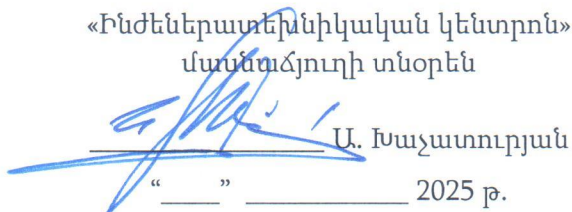 «Ինժեներատեխնիկական կենտրոն»
մասնաճյուղի տնօրեն
____________________ Ա. Խաչատուրյան
“_____” ______________ 2025 թ.